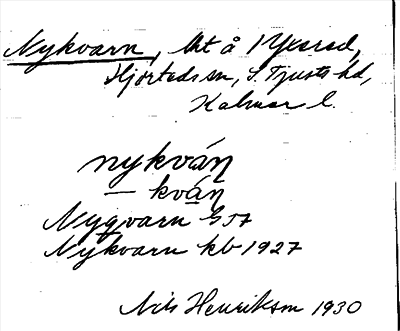 Nykvarn, lht å Yxered,
Hjorteds sn, S. Tjusts hd,
Kalmar l.
nykváɳ
— kváɳ
Nyqvarn G 57
Nykvarn kb 1927
Nils Henriksson 1930